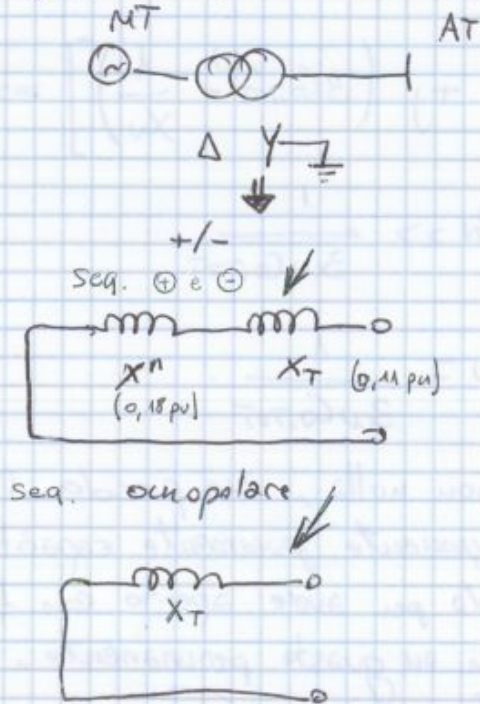 MT
AT
Δ Y
+/-
seq. ⊕ e ⊖
X" X_T (0,11 pu)
(0,18 pu)
seq. omopolare
X_T